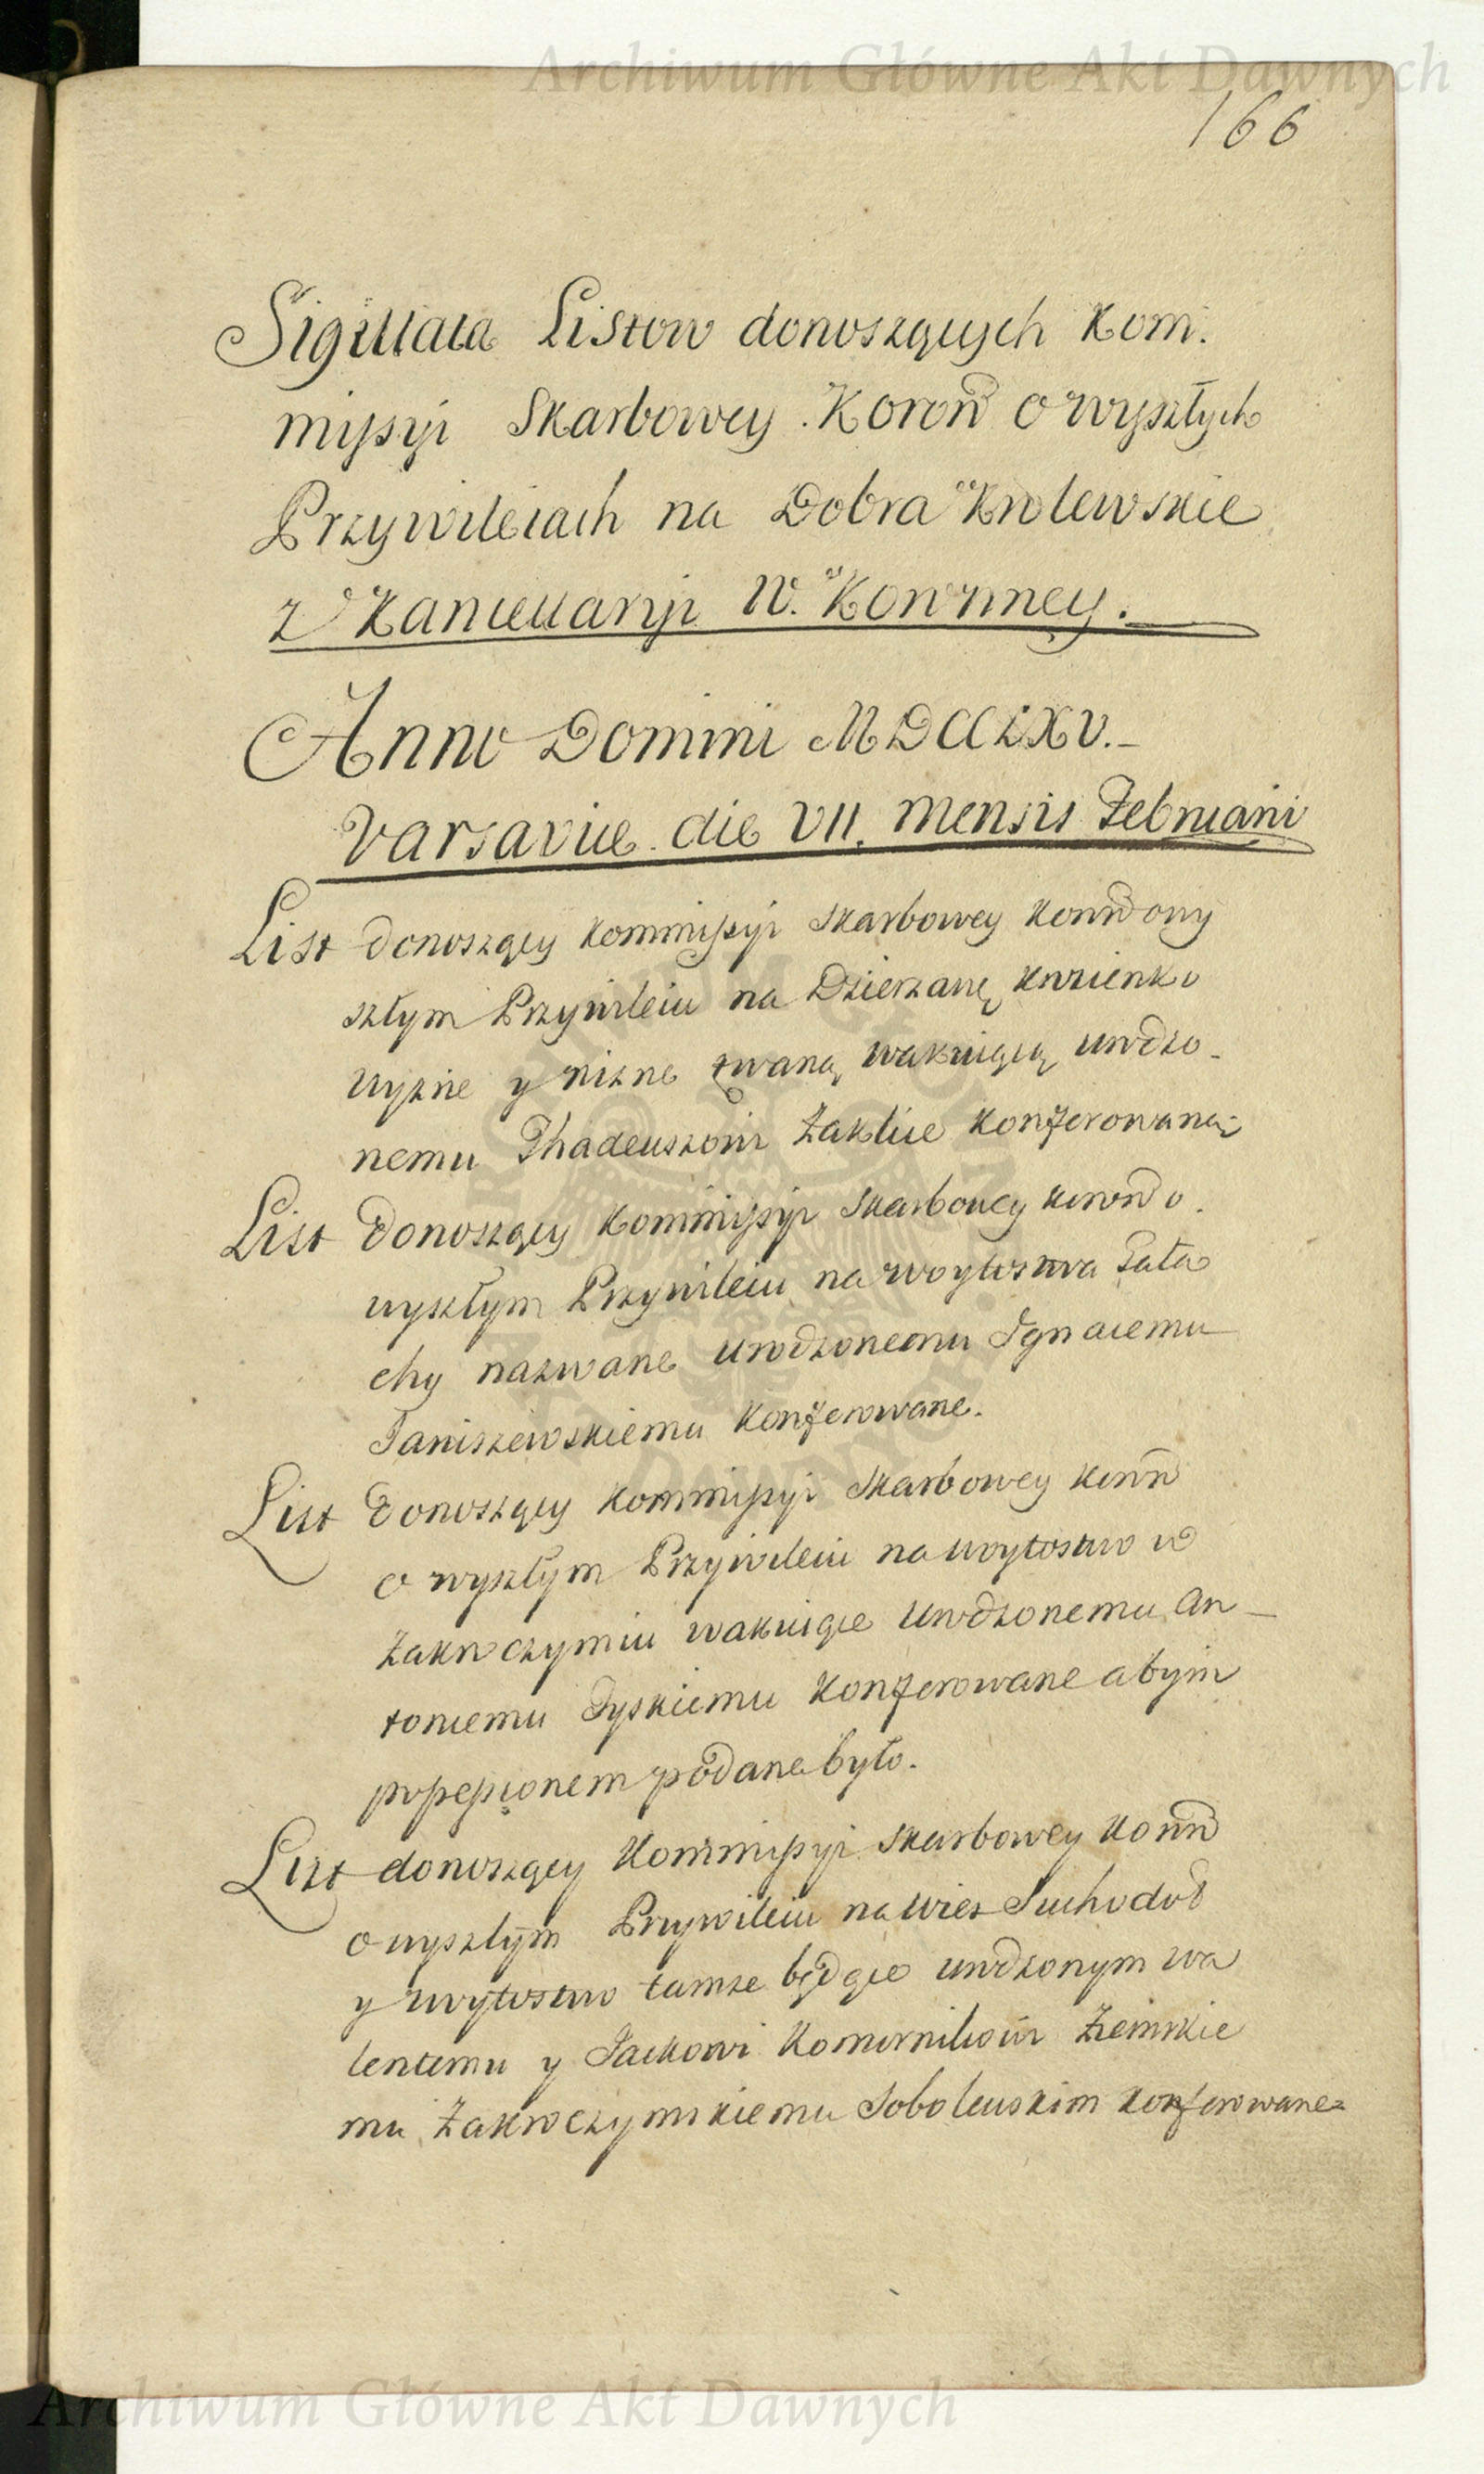 Archiwum Główne Akt Dawnych
166
Sigillata Listow donoszących Kom.
missyi Skarbowey Koroñ o wyszłych
Przywileiach na Dobra Krolewskie
z Kancellaryi W. Koronney.
Anno Domini MDCCLXV.
Varsaviae die VII. mensis Februarii
List donoszący Kommissyi Skarbowey Koroñ o wy
szłym Przywileiu na Dzierzawę
wyżne y niżne zwaną wakuiącą urodzo-
nemu Thadeuszowi Zaklice Konferowaną
List donoszący Kommissyi Skarbowey Koroñ o
wyszłym Przywileiu na woytostwa Pała
chy nazwane urodzonemu Ignacemu
Janiszewskiemu Konferowane.
List donoszący Kommissyi Skarbowey Koroñ
o wyszłym Przywileiu na woytostwo w
Zakroczymiu wakuiące Urodzonemu An-
toniemu Konferowane aby im
possessionem podane było.
List donoszący Kommissyi Skarbowey Koroñ
o wyszłym Przywileiu na wies Suchodoł
y woytostwo tamze będące urodzonym Wa
lentemu y Jackowi Komornikowi Ziemskie
mu Zakroczymskiemu Sobolewskim konferowane
Archiwum Główne Akt Dawnych